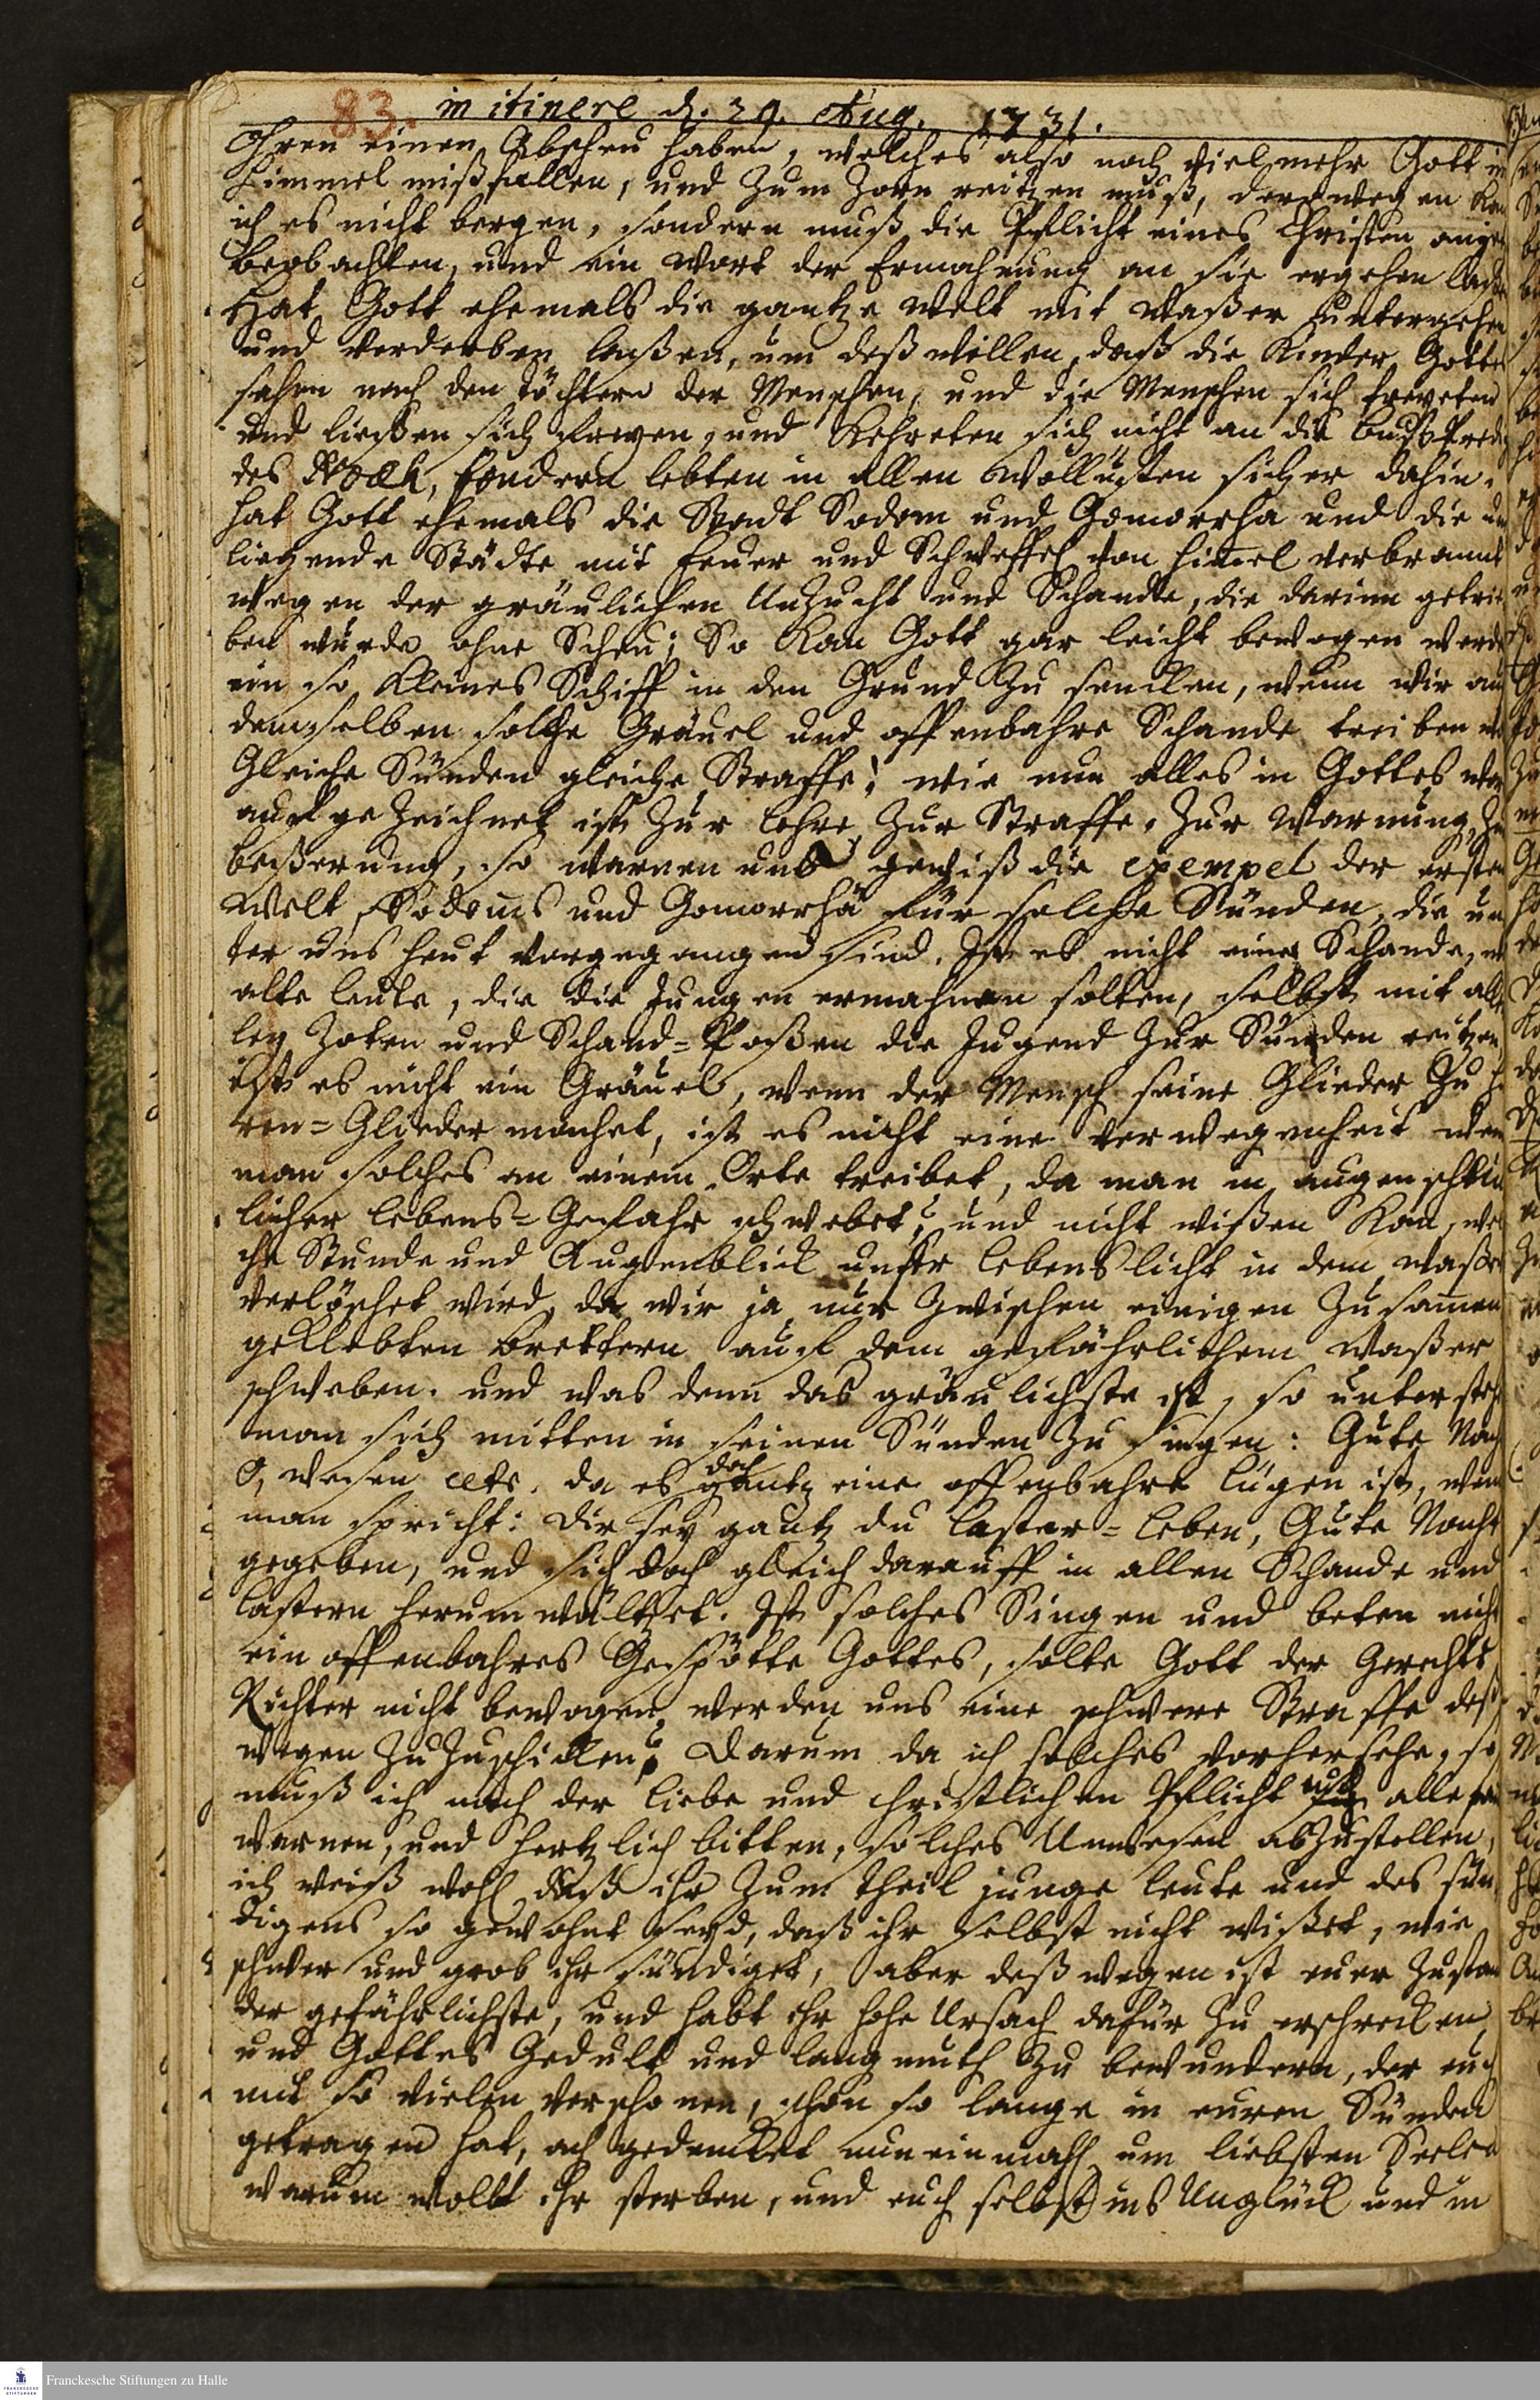 83. in itinere d. 29. Aug. 1731.
Ohren einen Abscheu haben, welches also noch viel mehr Gott im
Himmel mißfallen, und zum Zorn reitzen muß, derowegen kan
ich es nicht bergen, sondern muß die Pflicht eines Christen
beobachten, und ein Wort der Ermahnung an sie ergehen laßen
Hat Gott ehemals die gantze Welt mit Waßer untergehen
und verderben laßen, um deßwillen, daß die Kinder Gottes
sahen nach den Töchtern der Menschen, und die Menschen sich freyeten
und ließen sich freyen, und kehreten sich nicht an die Bußpredig
des Noæ, sondern lebten in allen Wollüsten sicher dahin.
hat Gott ehemals die Stadt Sodom und Gomorrha und die um
liegende Städte mit Feuer und Schweffel von Himel verbrannt
wegen der gräulichen Unzucht und Schande, die darinn getrie
ben wurde ohne Scheu; So kan Gott gar leicht bewogen werden
ein so kleines Schiff in den Grund zu sencken, wenn wir auf
demselben solche Gräuel und offenbahre Schande treiben
Gleiche Sünden gleiche Straffe! wie nun alles in Gottes Wort
aufgezeichnet ist zur Lehre, zur Straffe, zur Warnung, zur
beßerung, so warnen uns gewiß die exempel der ersten
Welt, Sodoms und Gomorrhä für solche Sünden, die un
ter uns heut vorgegangen sind. Ist es nicht eine Schande,
alte Leute, die die Jungen ermahnen solten, selbst mit aller
ley Zoten und Schand-Poßen die Jugend zur Sünden reitzen,
ist es nicht ein Gräuel, wenn der Mensch seine Glieder zu Hu
ren-Glieder machet, ist es nicht eine Verwegenheit wenn
man solches an einem Orte treibet, da man in augenschein
licher Lebens-Gefahr schwebet? und nicht wißen kan, wel
che Stunde und Augenblick unser Lebenslicht in dem Waßer
verlöschet wird, da wir ja nur zwischen einigen zusamen
geklebten Brettern auf dem gefährlichem Waßer
schweben. und was denn das gräulichste ist, so untersteht
man sich mitten in seinen Sünden zu singen: Gute Nacht
O, Wesen etc. da es doch gantz eine offenbahre Lügen ist, wenn
man spricht: Dir sey gantz du Laster-Leben, Gute Nacht
gegeben, und sich doch gleich darauff in allen Schande und
Lastern herumwältzet. Ist solches Singen und beten nicht
ein offenbahres Gespötte Gottes, solte Gott der Gerechte
Richter nicht bewogen werden uns eine schwere Straffe deß
wegen zuzuschicken? Darum da ich solches vorhersehe, so
muß ich nach der Liebe und christlichen Pflicht euch alle
warnen, und hertzlich bitten, solches Unwesen abzustellen,
ich weiß wohl daß ihr zum theil junge Leute und des sün
digens so gewohnt seyd, daß ihr selbst nicht wißet, wie
schwer und grob ihr sündiget, aber deßwegen ist euer Zustand
der gefährlichste, und habt ihr hohe Ursach dafür zu erschrecken,
und Gottes Gedult und Langmuth zu bewundern, der euch
mit so vielen verschonen, schon so lange in euren Sünden
getragen hat, ach gedencket nun einmahl um liebsten Seelen
warum wollt ihr sterben, und euch selbst ins Unglück und in
Franckesche Stiftungen zu Halle